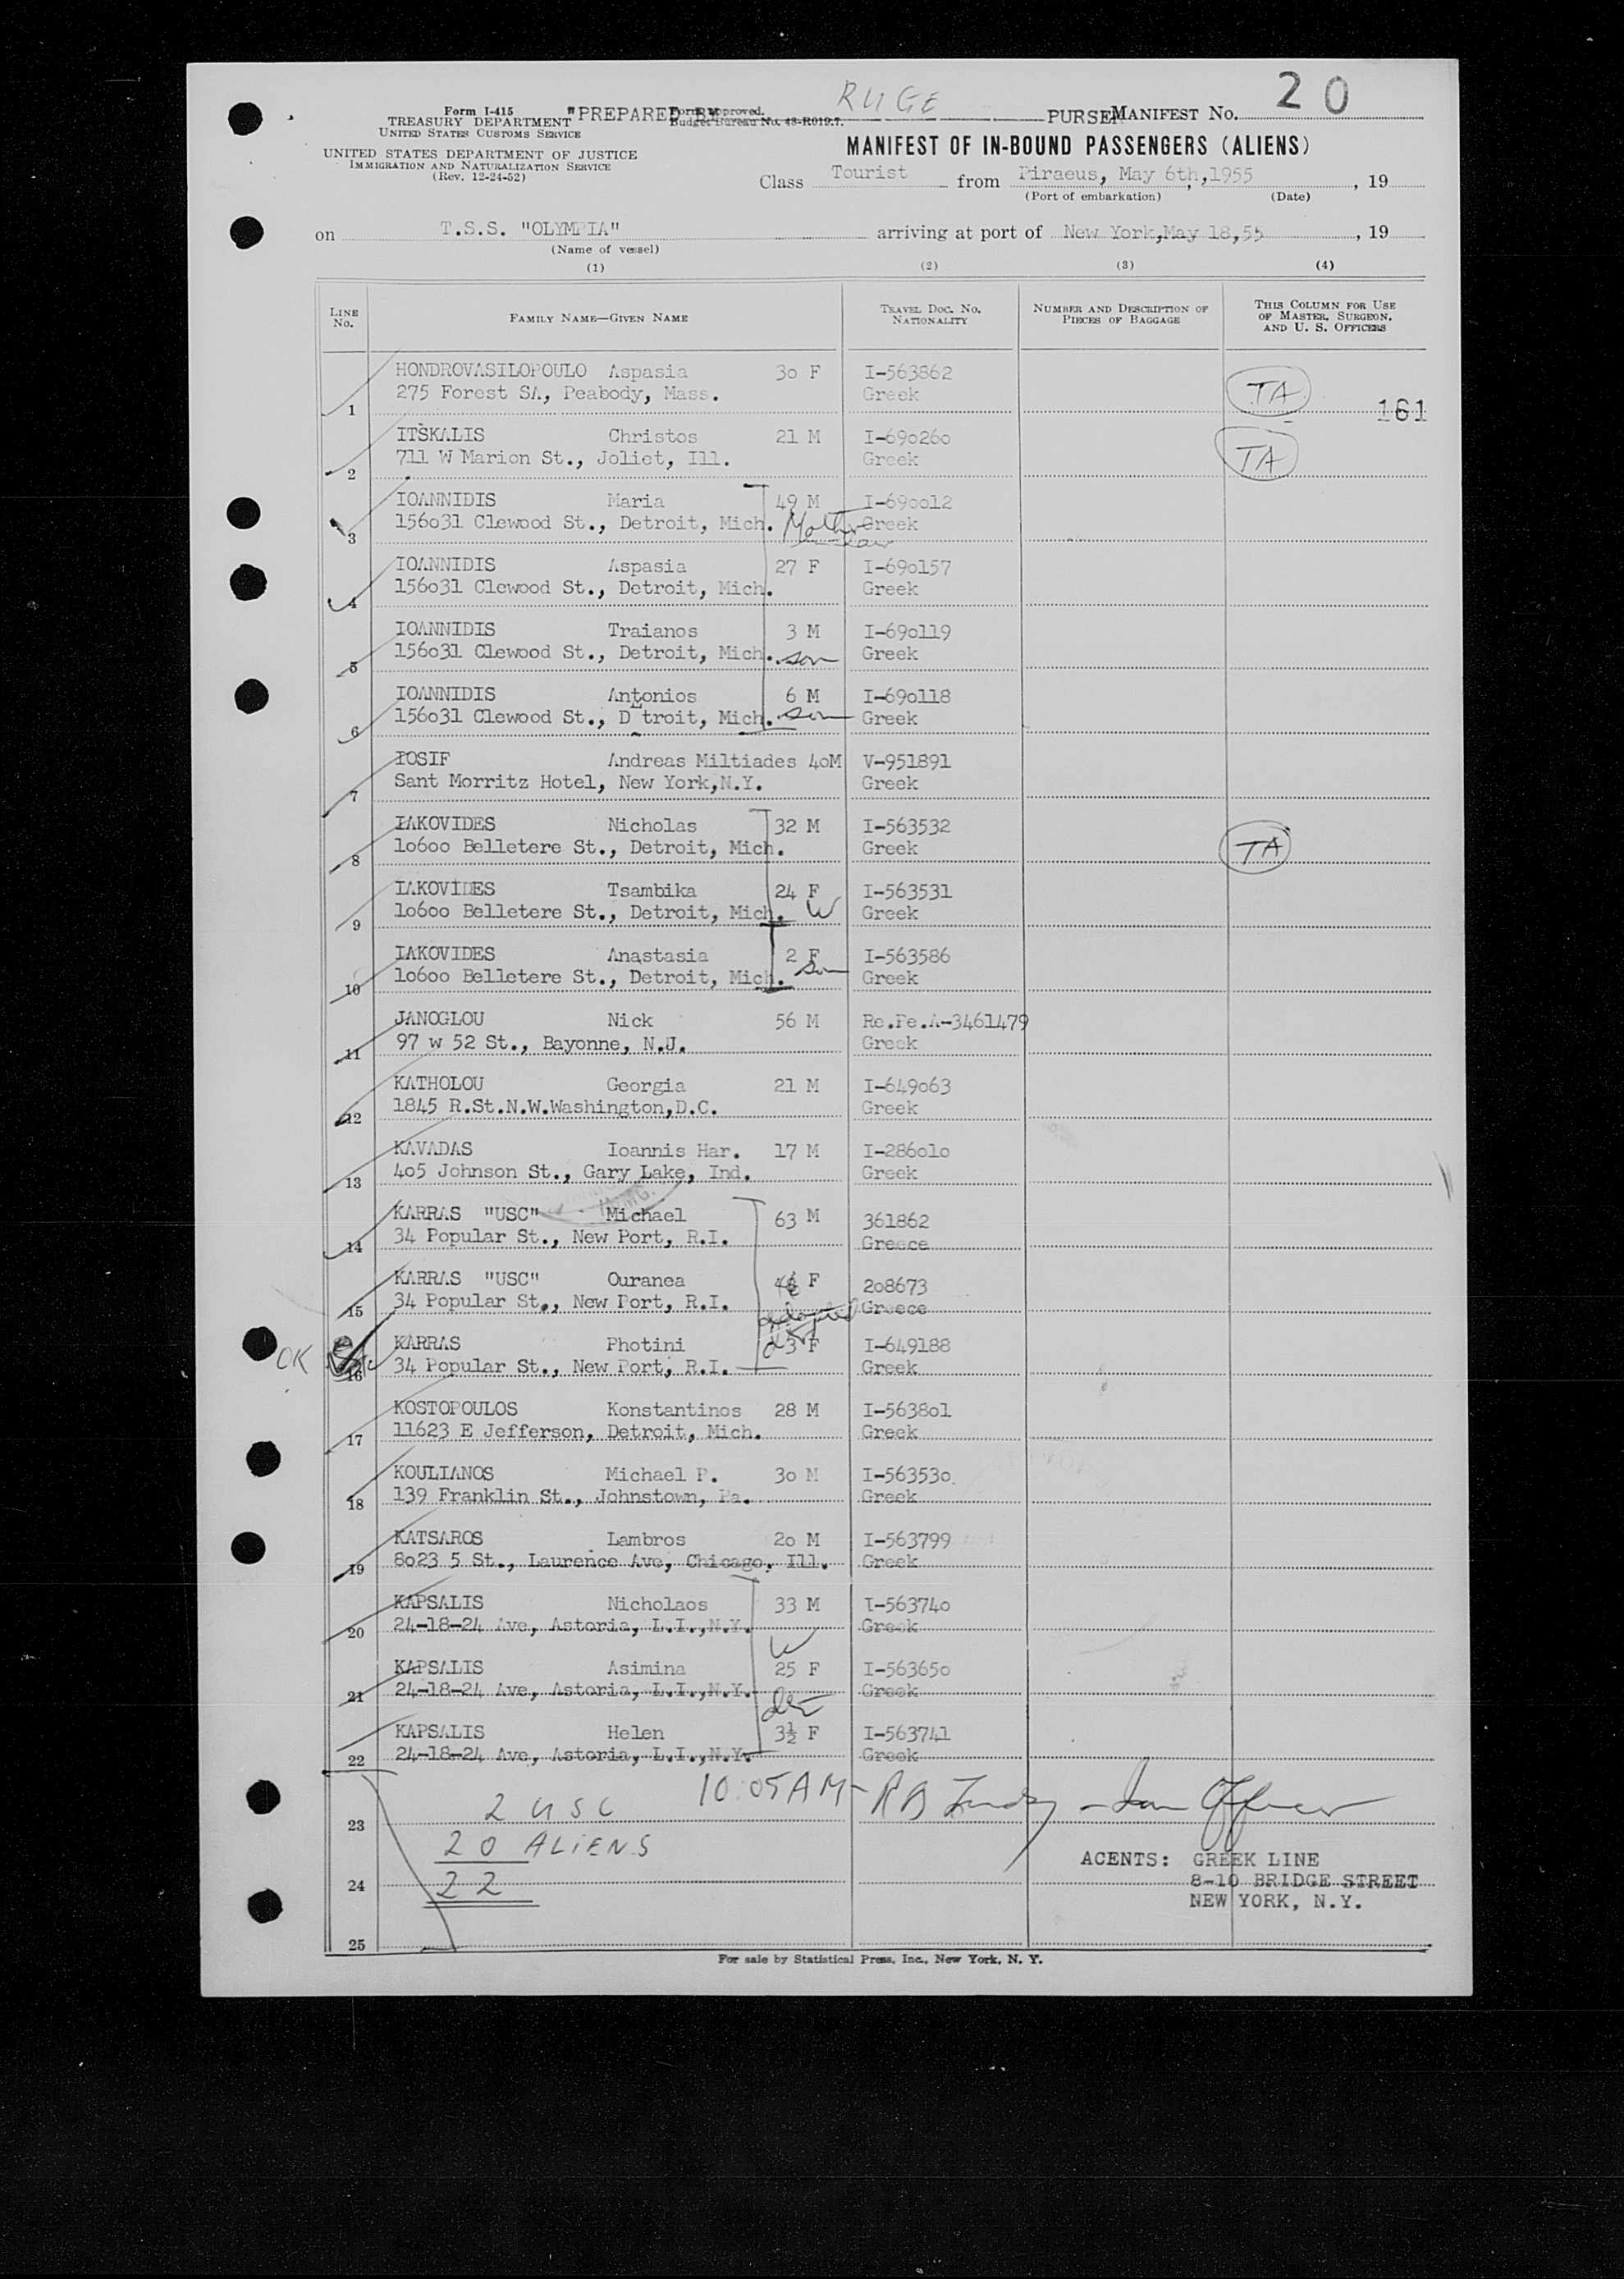 RUGE
20
Form I-415 "PREPARED BY Form Approved. PURSER MANIFEST No.
TREASURY DEPARTMENT Budget Bureau No. 43-R019.7.
UNITED STATES CUSTOMS SERVICE
MANIFEST OF IN-BOUND PASSENGERS (ALIENS)
UNITED STATES DEPARTMENT OF JUSTICE
IMMIGRATION AND NATURALIZATION SERVICE
(Rev. 12-24-52)
Class Tourist from Piraeus, May 6th,1955, 19
(Port of embarkation) (Date)
on T.S.S. "OLYMPIA" arriving at port of New York,May 18,55, 19
(Name of vessel)
(1) (2) (3) (4)
LINE No. FAMILY NAME—GIVEN NAME TRAVEL DOC. NO. NATIONALITY NUMBER AND DESCRIPTION OF PIECES OF BAGGAGE THIS COLUMN FOR USE OF MASTER, SURGEON, AND U. S. OFFICERS
HONDROVASILOPOULO Aspasia 30 F I-563862 TA
1 275 Forest SA, Peabody, Mass. Greek 161
ITSKALIS Christos 21 M I-690260 TA
2 711 W Marion St., Joliet, Ill. Greek
IOANNIDIS Maria 49 M I-690012
3 156031 Clewood St., Detroit, Mich. Mother in law Greek
IOANNIDIS Aspasia 27 F I-690157
4 156031 Clewood St., Detroit, Mich. Greek
IOANNIDIS Traianos 3 M I-690119
5 156031 Clewood St., Detroit, Mich. son Greek
IOANNIDIS Antonios 6 M I-690118
6 156031 Clewood St., D troit, Mich. son Greek
IOSIF Andreas Miltiades 40M V-951891
7 Sant Morritz Hotel, New York,N.Y. Greek
IAKOVIDES Nicholas 32 M I-563532 TA
8 10600 Belletere St., Detroit, Mich. Greek
IAKOVIDES Tsambika 24 F I-563531
9 10600 Belletere St., Detroit, Mich. W Greek
IAKOVIDES Anastasia 2 F I-563586
10 10600 Belletere St., Detroit, Mich. son Greek
JANOGLOU Nick 56 M Re.Pe.A-3461479
11 97 w 52 St., Bayonne, N.J. Greek
KATHOLOU Georgia 21 M I-649063
12 1845 R.St.N.W.Washington,D.C. Greek
KAVADAS Ioannis Har. 17 M I-286010
13 405 Johnson St., Gary Lake, Ind. Greek
KARRAS "USC" Michael 63 M 361862
14 34 Popular St., New Port, R.I. Greece
KARRAS "USC" Ouranea F 208673
15 34 Popular St., New Port, R.I. adopted Greece
KARRAS Photini 23 F I-649188
OK 16 34 Popular St., New Port, R.I. Greek
KOSTOPOULOS Konstantinos 28 M I-563801
17 11623 E Jefferson, Detroit, Mich. Greek
KOULIANOS Michael P. 30 M I-563530
18 139 Franklin St., Johnstown, Pa. Greek
KATSAROS Lambros 20 M I-563799
19 8023 5 St., Laurence Ave, Chicago, Ill. Greek
KAPSALIS Nicholaos 33 M I-563740
20 24-18-24 Ave, Astoria, L.I.,N.Y. Greek
W
KAPSALIS Asimina 25 F I-563650
21 24-18-24 Ave, Astoria, L.I.,N.Y. Greek
KAPSALIS Helen 3½ F I-563741
22 24-18-24 Ave, Astoria, L.I.,N.Y. Greek
10:05 AM- Officer
23 2 USC
20 ALIENS
AGENTS: GREEK LINE
24 22 8-10 BRIDGE STREET
NEW YORK, N.Y.
25
For sale by Statistical Press, Inc., New York, N. Y.